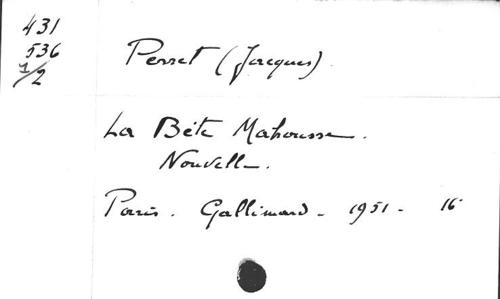 431
536
1/2
Perret (Jacques).
La Bête Mahousse.
Nouvelle.
Paris. Gallimard - 1951 - 16